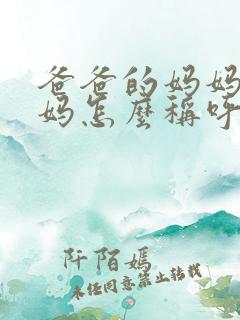 爸爸的妈妈
妈怎麼稱呼
阡陌嫣
未经同意禁止转载